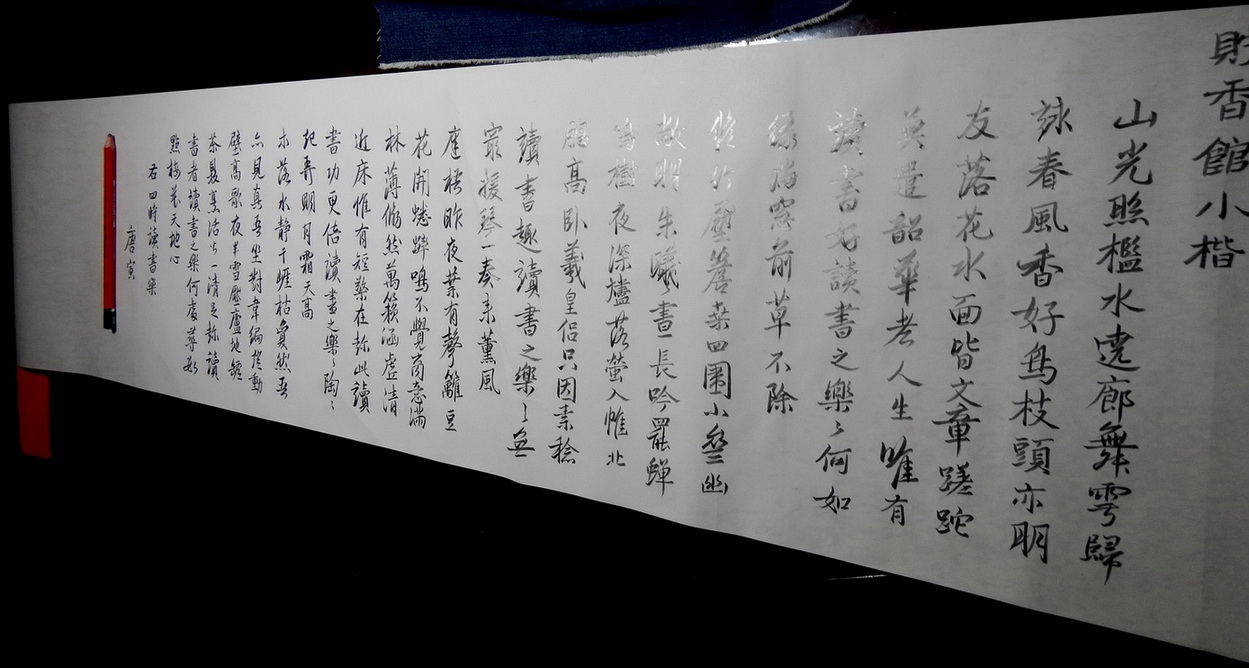 財香館小楷
山光照檻水遶廊舞雩歸
詠春風香好鳥枝頭亦朋
友落花水面皆文章蹉跎
莫遣韶華老人生唯有
讀書好讀書之樂〻何如
綠滿窓前草不除
修竹壓簷桑四圍小齋幽
敞明朱曦晝長吟罷蟬
鳴樹夜深燼落螢入幃北
牕高臥羲皇侶只因素稔
讀書趣讀書之樂〻無
窮援琴一奏來薰風
庭梧昨夜葉有聲籬豆
花開蟋蟀鳴不覺商意滿
林薄翛然萬籟涵虛清
近床惟有短檠在趁此讀
書功更倍讀書之樂〻陶〻
起弄明月霜天高
木落水静千崖枯夐然吾
亦見真吾坐對韋編燈動
壁高歌夜半雪壓廬地爐
茶鼎烹活火一清足稱讀
書者讀書之樂何處尋數
點梅花天地心
右四時讀書樂
唐寅